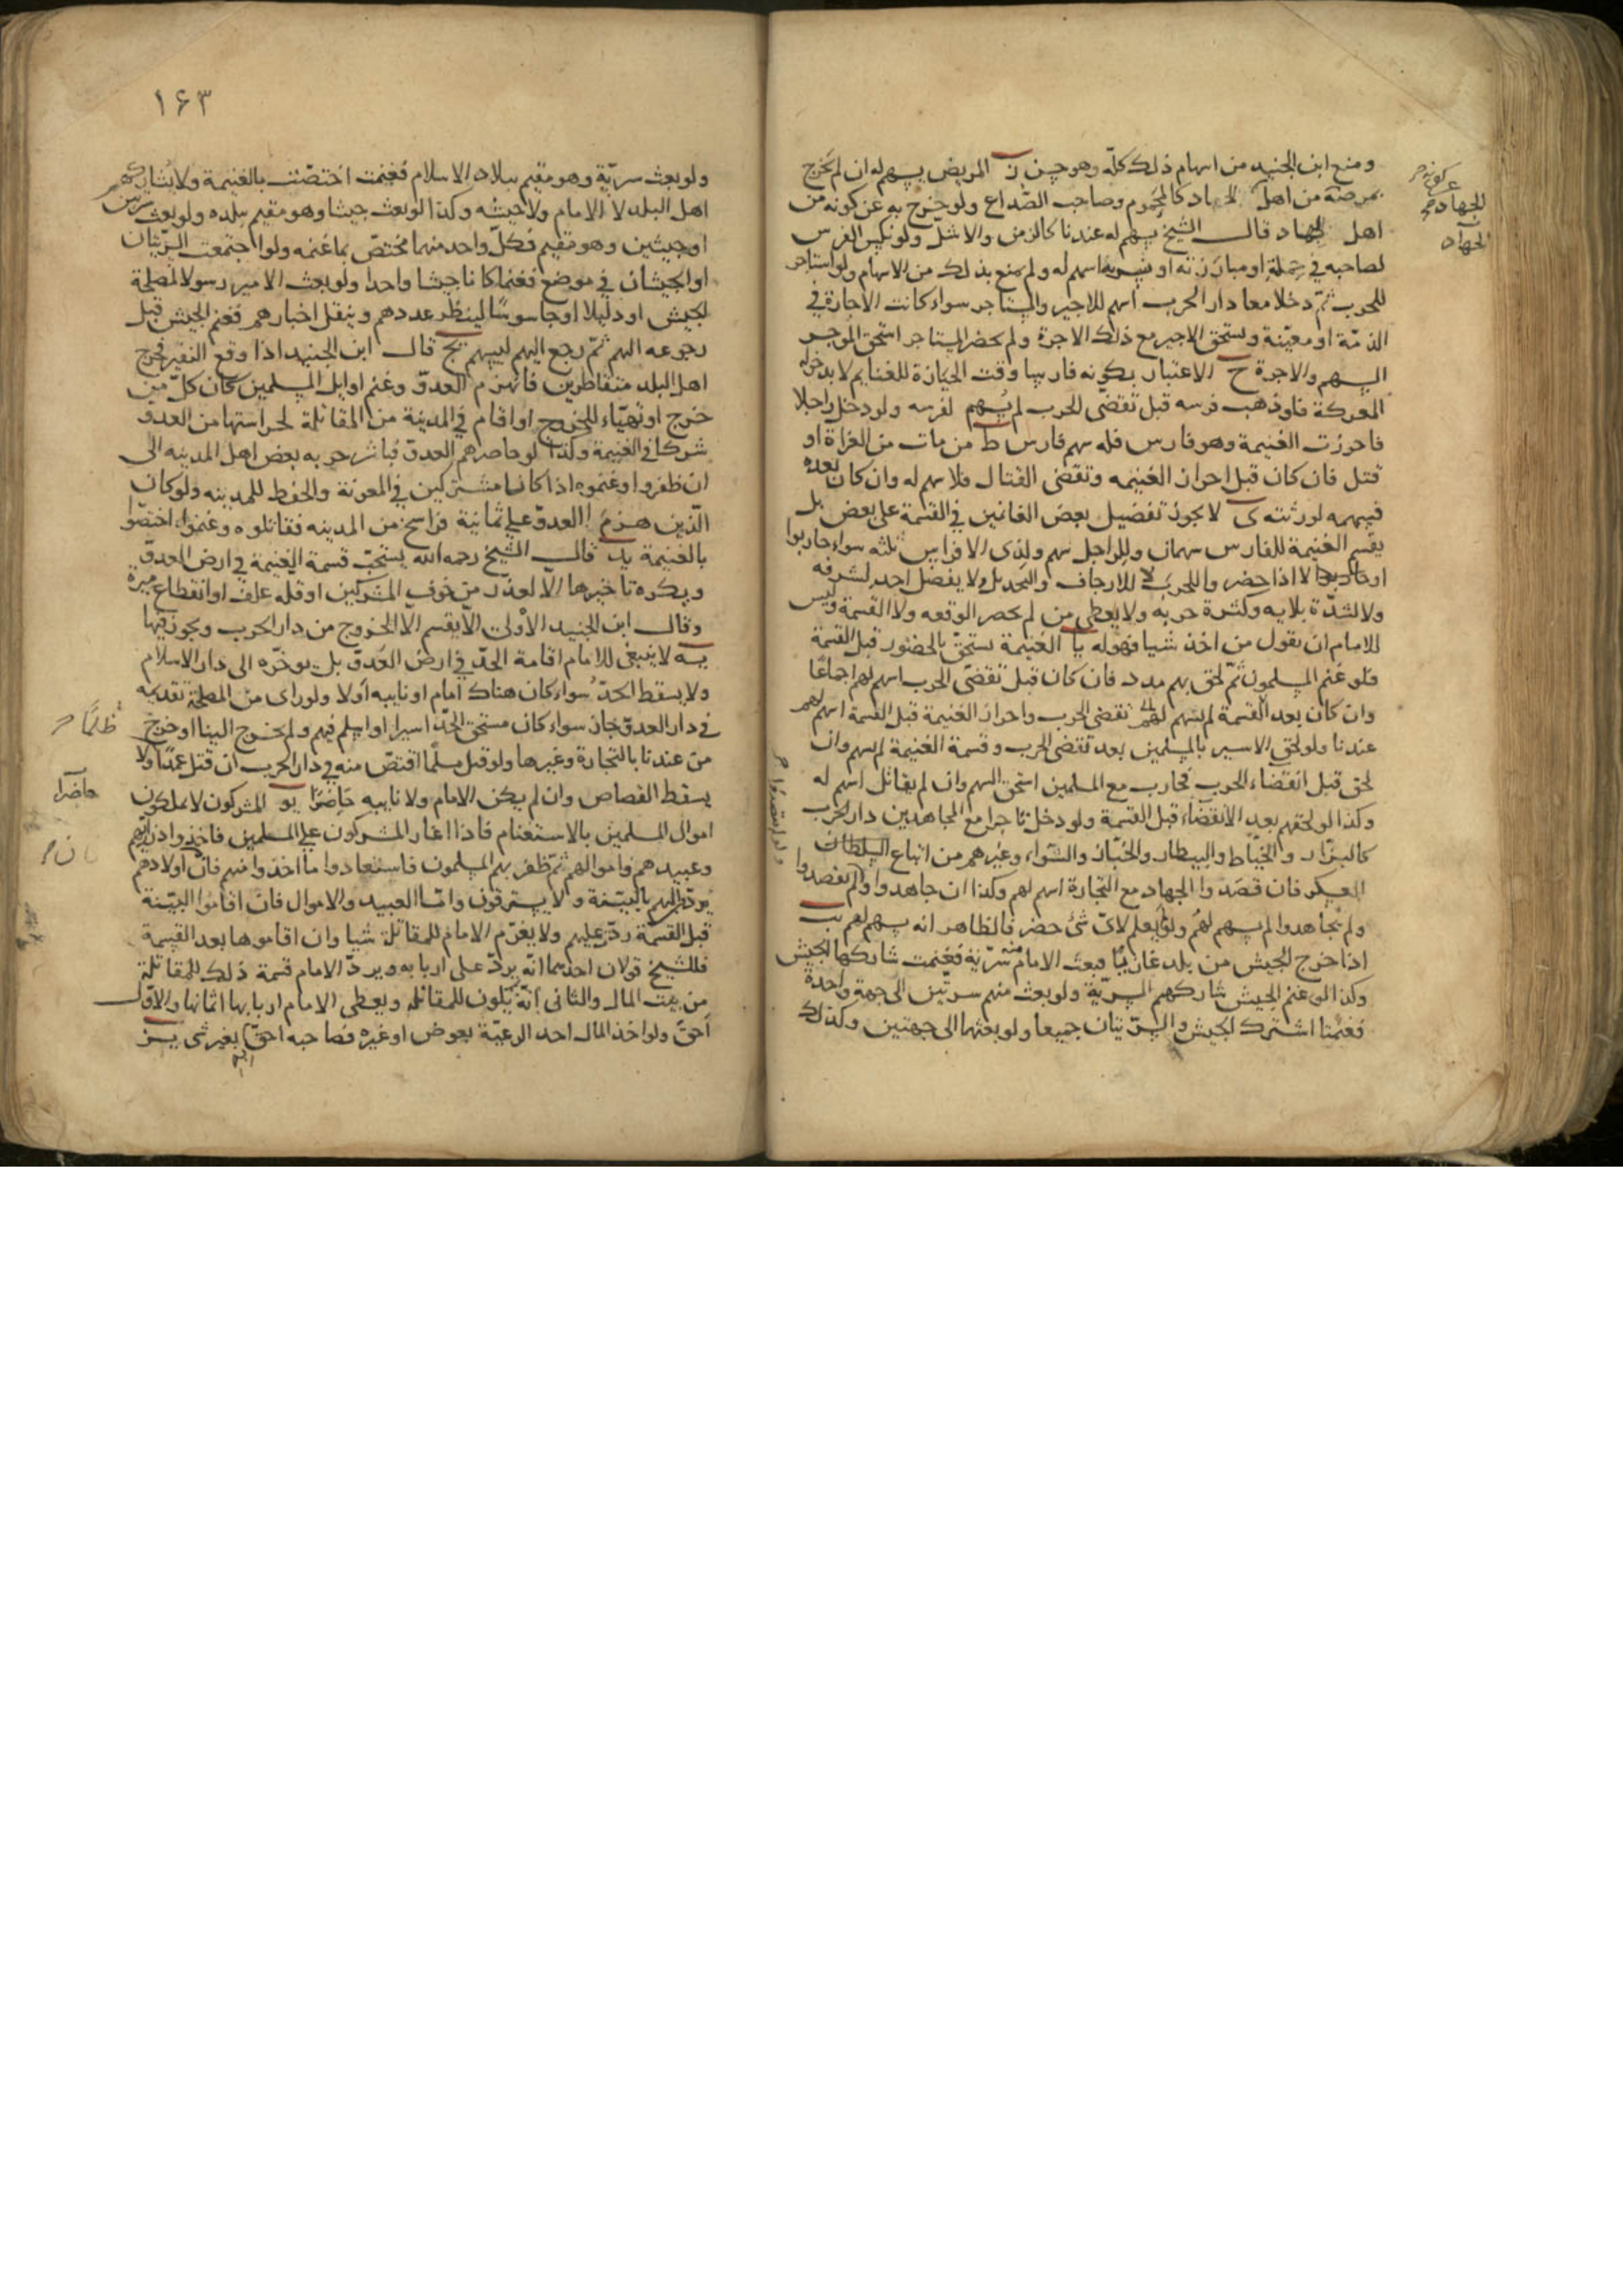 ومنع ابن الجنيد من اسهام ذلك كله وهو حسن ز المريض يسهم له ان لم يخرج
بمرضه من اهل الجهاد كالمحموم وصاحب الصداع ولو خرج به عن كونه من
اهل الجهاد قال الشيخ يسهم له عندنا كالزمن والاشل ولو نكس الفرس
لصاحبه في حملة او مبارزته او ضربه اسهم له ولم يمنع بذلك من الاسهام ولو استاجر
للحرب ثم دخلا معا دار الحرب اسهم للاجير والمستاجر سواء كانت الاجارة في
الذمة او معينة ويستحق الاجير مع ذلك الاجرة ولم يحضر المستاجر استحق الموجر
السهم والاجرة ح الاعتبار بكونه فارسا وقت الحيازة للغنايم لا بدخوله
المعركة فلو ذهب فرسه قبل تقضى الحرب لم يسهم لفرسه ولو دخل راجلا
فاحرزت الغنيمة وهو فارس فله سهم فارس ط من مات من الغزاة او
قتل فان كان قبل احراز الغنيمه وتقضى القتال فلا سهم له وان كان بعده
فسهمه لورثته ى لا يجوز تفضيل بعض الغانمين في القسمة على بعض بل
يقسم الغنيمة للفارس سهمان وللراجل سهم ولذى الافراس ثلثه سواء حاربوا
او لا اذا حضروا للحرب لا للارجاف والتخذيل ولا يفضل احد لشرفه
ولا لشدة بلايه وكثرة حربه ولا يعطى من لم يحضر الوقعه ولا القسمة وليس
للامام ان يقول من اخذ شيا فهو له يا الغنيمة تستحق بالحضور قبل القسمة
فلو غنم المسلمون ثم لحق بهم مدد فان كان قبل تقضى الحرب اسهم لهم اجماعا
وان كان بعد القسمة لم يسهم لهم تقضى الحرب واحراز الغنيمة قبل القسمة اسهم لهم
عندنا ولو لحق الاسير بالمسلمين بعد تقضى الحرب وقسمة الغنيمة لم يسهم وان
لحق قبل انقضاء الحرب فحارب مع المسلمين استحق السهم وان لم يقاتل اسهم له
وكذا لو لحقهم بعد الانقضاء قبل القسمة ولو دخل تاجرا مع المجاهدين دار الحرب
كالبزاز والخياط والبيطار والخباز والشواء وغيرهم من اتباع السلطان
العسكر فان قصدوا الجهاد مع التجارة اسهم لهم وكذا ان جاهدوا ولم يقصدوا
ولم يجاهدوا لم يسهم لهم ولو لم يعلم لاى شئ حضر فالظاهر انه يسهم لهم يب
اذا خرج الجيش من بلد غازيا فبعث الامام منه سرية فغنمت شاركها الجيش
وكذا لو غنم الجيش شاركهم السرية ولو بعث منهم سريتين الى جهة واحدة
فغنمتا اشترك الجيش والسريتان جميعا ولو بعثهما الى جهتين وكذلك
عن كونه
للجهاد
الجهاد
ولو لم يقصدوا
١۶٣
ولو بعث سرية وهو مقيم ببلاد الاسلام فغنمت اختصت بالغنيمة ولا يشاركهم
اهل البلد لا الامام ولا جيشه وكذا لو بعث جيشا وهو مقيم ببلده ولو بعث سريتين
او جيشين وهو مقيم فكل واحد منهما مختص بما غنمه ولو اجتمعت السريتان
او الجيشان في موضع فغنما كانا جيشا واحدا ولو بعث الامير رسولا لمصلحة
الجيش او دليلا او جاسوسا لينظر عددهم وينقل اخبارهم فغنم الجيش قبل
رجوعه اليهم ثم رجع اليهم ليسهم يج قال ابن الجنيد اذا وقع النفير فخرج
اهل البلد متقاطرين فانهزم العدو وغنم اوايل المسلمين كان كل من
خرج او تهياء للخروج او اقام في المدينة من المقاتلة لحراستها من العدو
شركا في الغنيمة وكذا لو حاصرهم العدو فباشر حربه بعض اهل المدينه الى
ان ظفروا وغنموه اذا كانا مشتركين في المعونة والحفظ للمدينه ولو كان
الذين هزم العدو على ثمانية فراسخ من المدينه فقاتلوه وغنموا اختصوا
بالغنيمة يد قال الشيخ رحمه الله يستحب قسمة الغنيمة في ارض العدو
ويكره تاخيرها الا لعذر من خوف المشركين او قله علف او انقطاع ميرة
وقال ابن الجنيد الاولى الا يقسم الا الخروج من دار الحرب ويجوز فيها
يه لا ينبغى للامام اقامة الحد في ارض العدو بل يوخره الى دار الاسلام
ولا يسقط الحد سواء كان هناك امام او نايبه اولا ولو راى من المصلحة تقديمه
في دار العدو جاز سواء كان مستحق الحد اسيرا او اسلم فيهم ولم يخرج الينا او خرج
من عندنا بالتجارة وغيرها ولو قتل مسلما اقتص منه في دار الحرب ان قتل عمدا ولا
يسقط القصاص وان لم يكن الامام ولا نايبه حاضرا يو المشركون لا يملكون
اموال المسلمين بالاستغنام فاذا اغار المشركون على المسلمين فاخذوا ذراريهم
وعبيدهم واموالهم ثم ظفر بهم المسلمون فاستعادوا ما اخذوا منهم فان اولادهم
يرد اليهم بالبينة ولا يسترقون واما العبيد والاموال فان اقاموا البينة
قبل القسمة رد عليهم ولا يغرم الامام للمقاتلة شيا وان اقاموها بعد القسمة
فللشيخ قولان احدهما انه يرد على اربابه ويرد الامام قسمة ذلك للمقاتلة
من بيت المال والثانى انه يكون للمقاتله ويعطى الامام اربابها اثمانها والاول
احق ولو اخذ المال احد الرعية بعوض او غيره فصاحبه احق بغير شى يز
ظلما
حاضرا